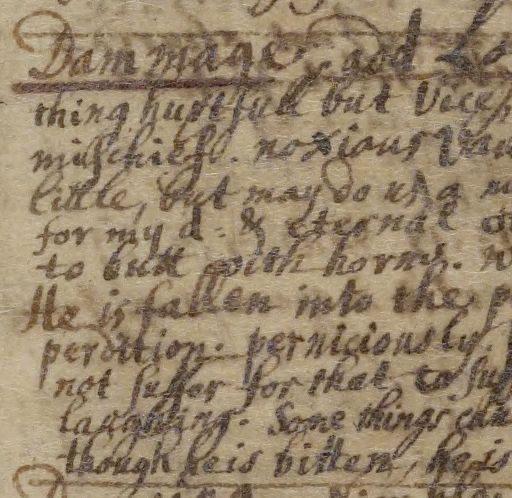 Dammage. god Lo
thing hurtfull but Vices
mischief. noxious Vau
little, but may do us a
for my d: & eternal
to butt with horns.
He is fallen into the p
perdition. perniciously.
not suffer for that, to suf
laughing. Some things can
though he is bitten, he is